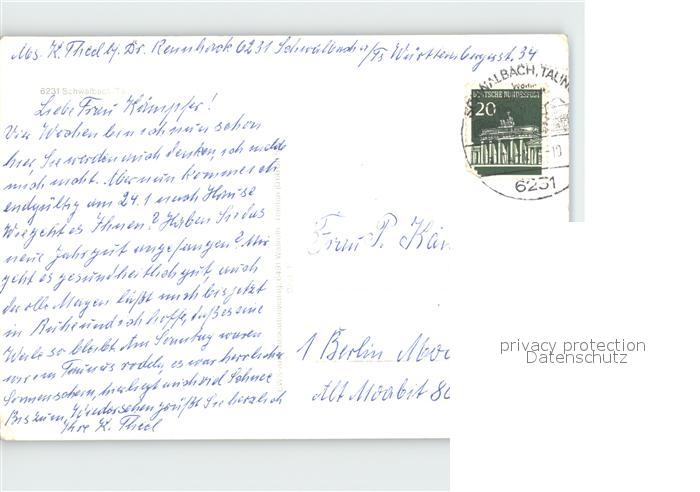 Abs. K. Thedl b. Dr. Rennhack 6231 Schwalbach a/Ts Württembergerstr. 34
6231 Schwalbach, Ts.
Liebe Frau Kämpfer!
Vier Wochen bin ich nun schon
hier, Sie werden auch denken, ich melde
mich nicht. Aber nun komme ich
endgültig am 24.1 nach Hause
Wie geht es Ihnen? Haben Sie das
neue Jahr gut angefangen? Mir
geht es gesundheitlich gut, auch
der olle Magen läßt mich bis jetzt
in Ruhe und ich hoffe, daß es eine
Weile so bleibt. Am Sonntag waren
wir im Taunus rodeln, es war herrlicher
Sonnenschein, hier liegt auch viel Schnee
Bis zum Wiedersehen grüßt Sie herzlich
Ihre K. Thedl
SCHWALBACH, TAUN
DEUTSCHE BUNDESPOST
20
-10
6231
Frau P. Käm
1 Berlin Moa
Alt Moabit 80
privacy protection
Datenschutz